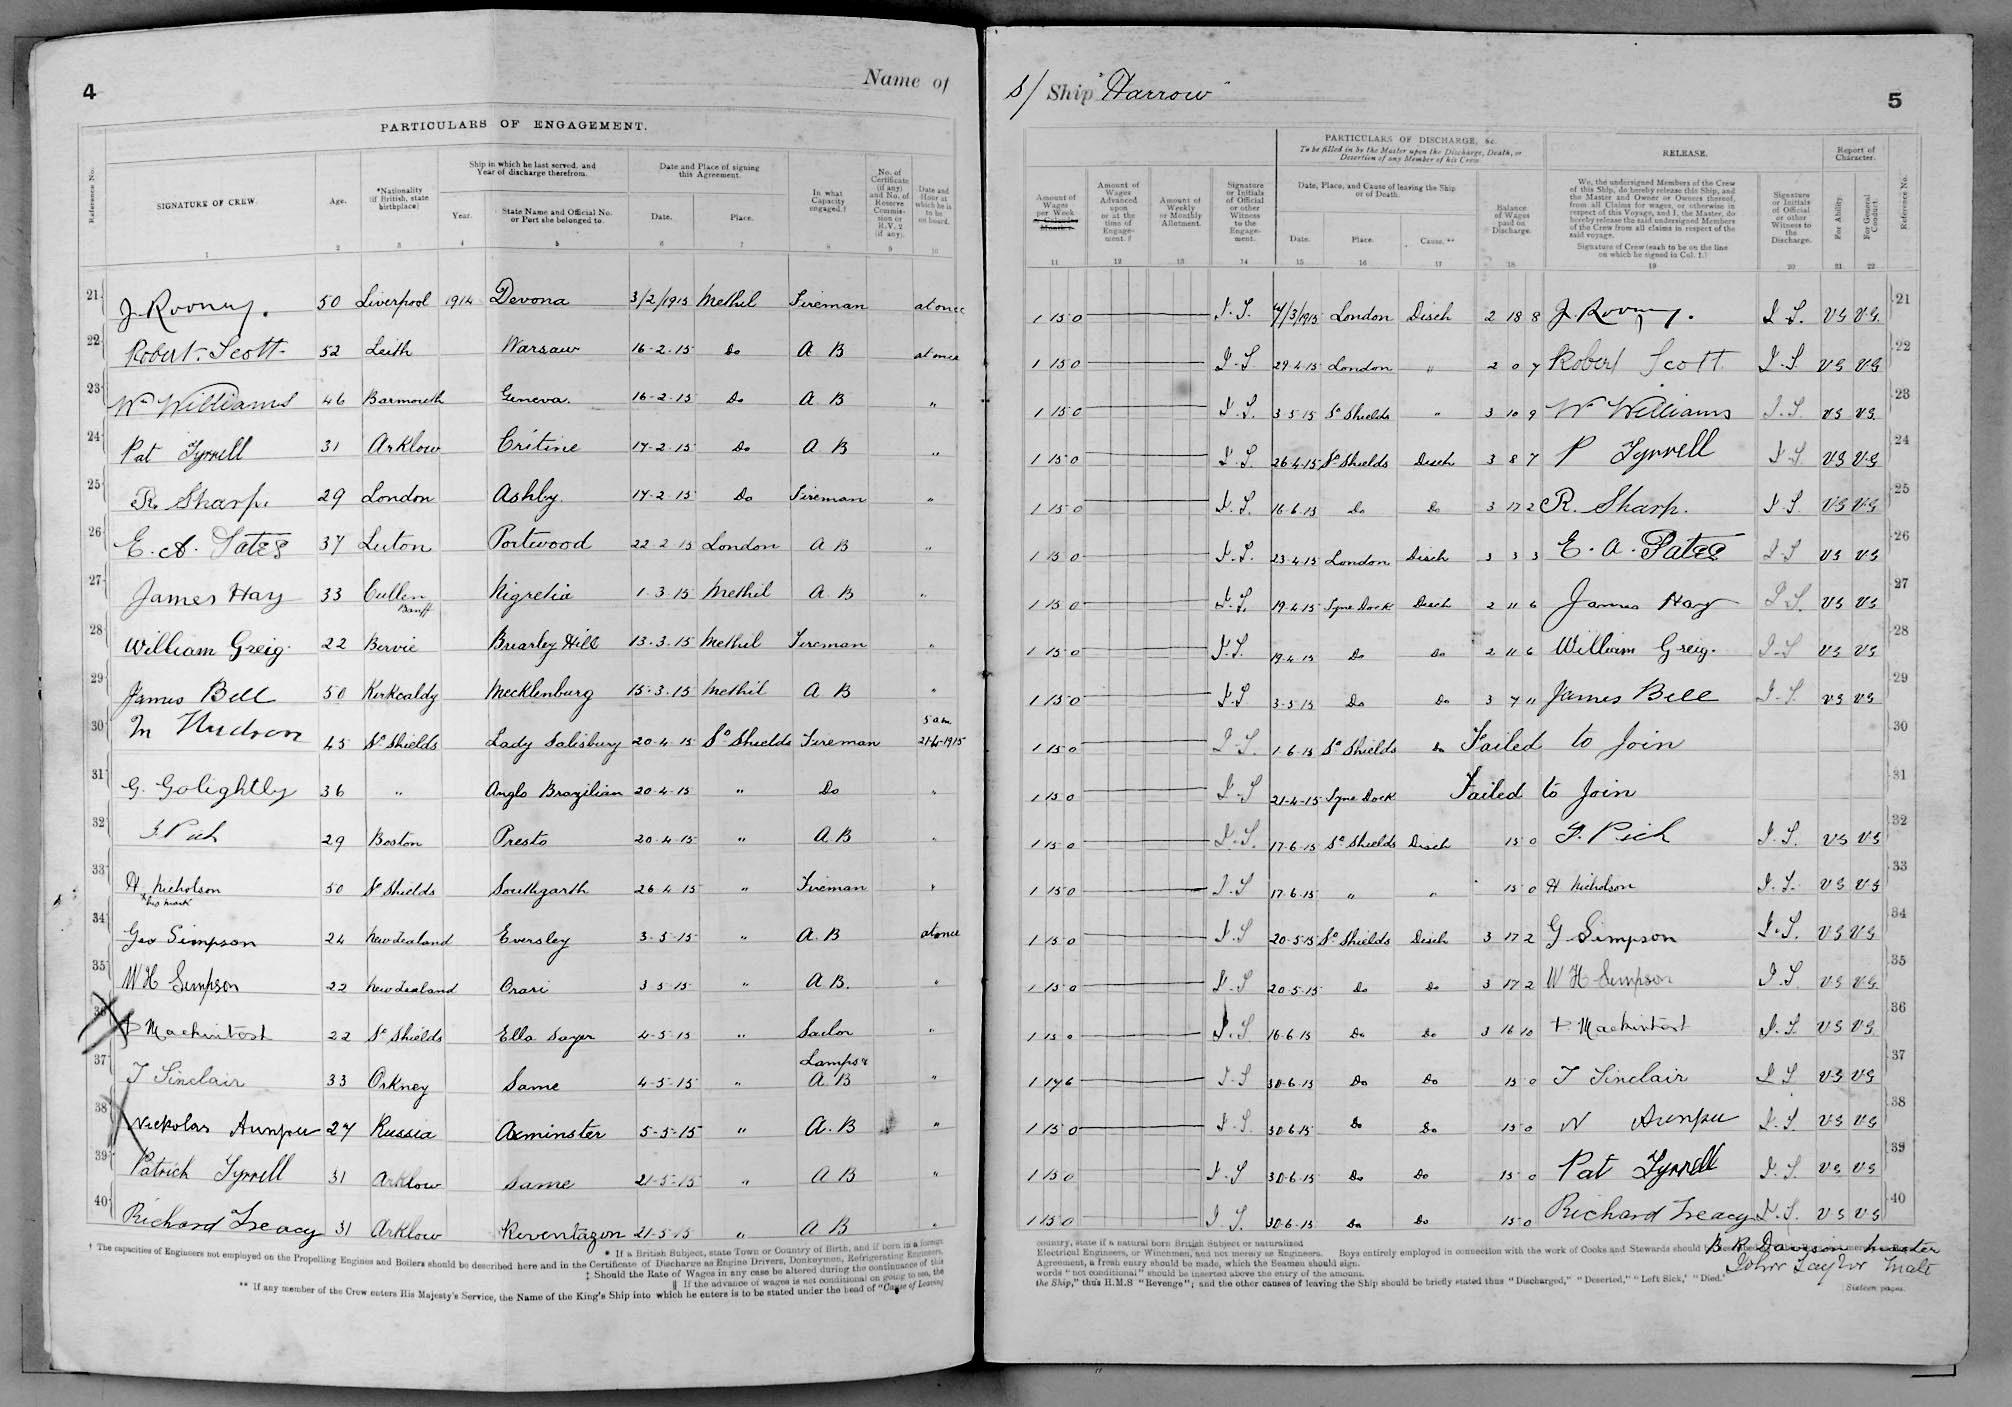 4
Name of
PARTICULARS OF ENGAGEMENT.
Reference No.
SIGNATURE OF CREW.
Age.
*Nationality (if British, state birthplace)
Ship in which he last served, and Year of discharge therefrom.
Year.
State Name and Official No. or Port she belonged to.
Date and Place of signing this Agreement.
Date.
Place.
In what Capacity engaged.†
No. of Certificate (if any) and No. of Reserve Commission or R.V. 2 (if any).
Date and Hour at which he is to be on board.
1 2 3 4 5 6 7 8 9 10
21 J. Rooney. 50 Liverpool 1914 Devona 3/2/1915 Methil Fireman at once
22 Robert Scott 52 Leith Warsaw 16-2-15 Do A B at once
23 Wm Williams 46 Barmouth Geneva. 16-2-15 Do A. B "
24 Pat Tyrrell 31 Arklow Critine 17-2-15 Do A B "
25 R. Sharp. 29 London Ashby. 17-2-15 Do Fireman "
26 E. A. Pates 37 Luton Portwood 22-2-15 London A B "
27 James Hay 33 Cullen Banff Nigretia 1.3.15 Methil A. B "
28 William Greig. 22 Bervie Briarley Hill 13.3.15 Methil Fireman "
29 James Bell 50 Kirkcaldy Mecklenburg 15.3.15 Methil A B "
30 M Hudson 45 So Shields Lady Salisbury 20-4-15 So Shields Fireman 5 a.m. 21-4-1915
31 G. Golightly 36 " Anglo Brazilian 20-4-15 " Do "
32 Pich 29 Boston Presto 20-4-15 " A. B "
33 H. Nicholson his mark 50 So Shields Southgarth 26 4-15 " Fireman "
34 Geo Simpson 24 New Zealand Eversley 3-5-15 " A. B at once
35 W H Simpson 22 New Zealand Orari 3 5-15 " A B. "
36 D Mackintosh 22 So Shields Ella Sayer 4-5-15 " Sailor "
37 T Sinclair 33 Orkney Same 4-5-15 " Lamps & A. B "
38 Nickolas 27 Russia Axminster 5-5-15 " A. B "
39 Patrick Tyrrell 31 Arklow Same 21-5-15 " A B "
40 Richard Treacy 31 Arklow Reventazon 21-5-15 " A B "
* If a British Subject, state Town or Country of Birth, and if born in a foreign
† The capacities of Engineers not employed on the Propelling Engines and Boilers should be described here and in the Certificate of Discharge as Engine Drivers, Donkeymen, Refrigerating Engineers,
‡ Should the Rate of Wages in any case be altered during the continuance of this
|| If the advance of wages is not conditional on going to sea, the
** If any member of the Crew enters His Majesty's Service, the Name of the King's Ship into which he enters is to be stated under the head of "Cause of Leaving
S/ Ship "Harrow"
5
PARTICULARS OF DISCHARGE, &c.
To be filled in by the Master upon the Discharge, Death, or Desertion of any Member of his Crew
RELEASE.
Report of Character.
Amount of Wages per Week
Amount of Wages Advanced upon or at the time of Engagement.
Amount of Weekly or Monthly Allotment.
Signature or Initials of Official or other Witness to the Engagement.
Date, Place, and Cause of leaving the Ship or of Death.
Date.
Place.
Cause.**
Balance of Wages paid on Discharge.
We, the undersigned Members of the Crew of this Ship, do hereby release this Ship, and the Master and Owner or Owners thereof, from all Claims for wages, or otherwise in respect of this Voyage, and I, the Master, do hereby release the said undersigned Members of the Crew from all claims in respect of the said voyage.
Signature of Crew (each to be on the line on which he signed in Col. 1.)
Signature or Initials of Official or other Witness to the Discharge.
For Ability.
For General Conduct.
Reference No.
11 12 13 14 15 16 17 18 19 20 21 22
1 15 0 14/3/1915 London Disch 2 18 8 J. Rooney. VG VG. 21
1 15 0 29-4-15 London " 2 0 7 Robert Scott VG VG 22
1 15 0 3-5-15 So Shields " 3 10 9 Wm Williams VG VG. 23
1 15 0 26-4-15 So Shields Disch 3 8 7 P Tyrrell VG VG 24
1 15 0 16-6-15 Do Do 3 17 2 R. Sharp. VG VG 25
1 15 0 23-4-15 London Disch 3 3 3 E. A. Pates VG VG 26
1 15 0 19-4-15 Tyne Dock Disch 2 11 6 James Hay VG VG 27
1 15 0 19-4-15 Do Do 2 11 6 William Greig. VG VG 28
1 15 0 3-5-15 Do Do 3 7 " James Bell VG VG 29
1 15 0 1-6-15 So Shields Do Failed to Join 30
1 15 0 21-4-15 Tyne Dock Failed to Join 31
1 15 0 17-6-15 So Shields Disch 15 0 Pich VG VG 32
1 15 0 17-6-15 " " 15 0 H Nicholson VG VG 33
1 15 0 20-5-15 So Shields Disch 3 17 2 G Simpson VG VG 34
1 15 0 20-5-15 Do Do 3 17 2 W H Simpson VG VG. 35
1 15 0 16-6-15 Do Do 3 16 10 D Mackintosh VG VG 36
1 17 6 30-6-15 Do Do 15 0 T Sinclair VG VG 37
1 15 0 30-6-15 Do Do 15 0 N VG VG 38
1 15 0 30-6-15 Do Do 15 0 Pat Tyrrell VG VG 39
1 15 0 30-6-15 Do Do 15 0 Richard Treacy VG VG 40
country, state if a natural born British Subject or naturalized
Electrical Engineers, or Winchmen, and not merely as Engineers. Boys entirely employed in connection with the work of Cooks and Stewards should
B R Davison Master
Agreement, a fresh entry should be made, which the Seamen should sign.
John Taylor Mate
words "not conditional" should be inserted above the entry of the amount.
the Ship," thus H.M.S "Revenge"; and the other causes of leaving the Ship should be briefly stated thus "Discharged," "Deserted," "Left Sick," "Died."
[Sixteen pages.